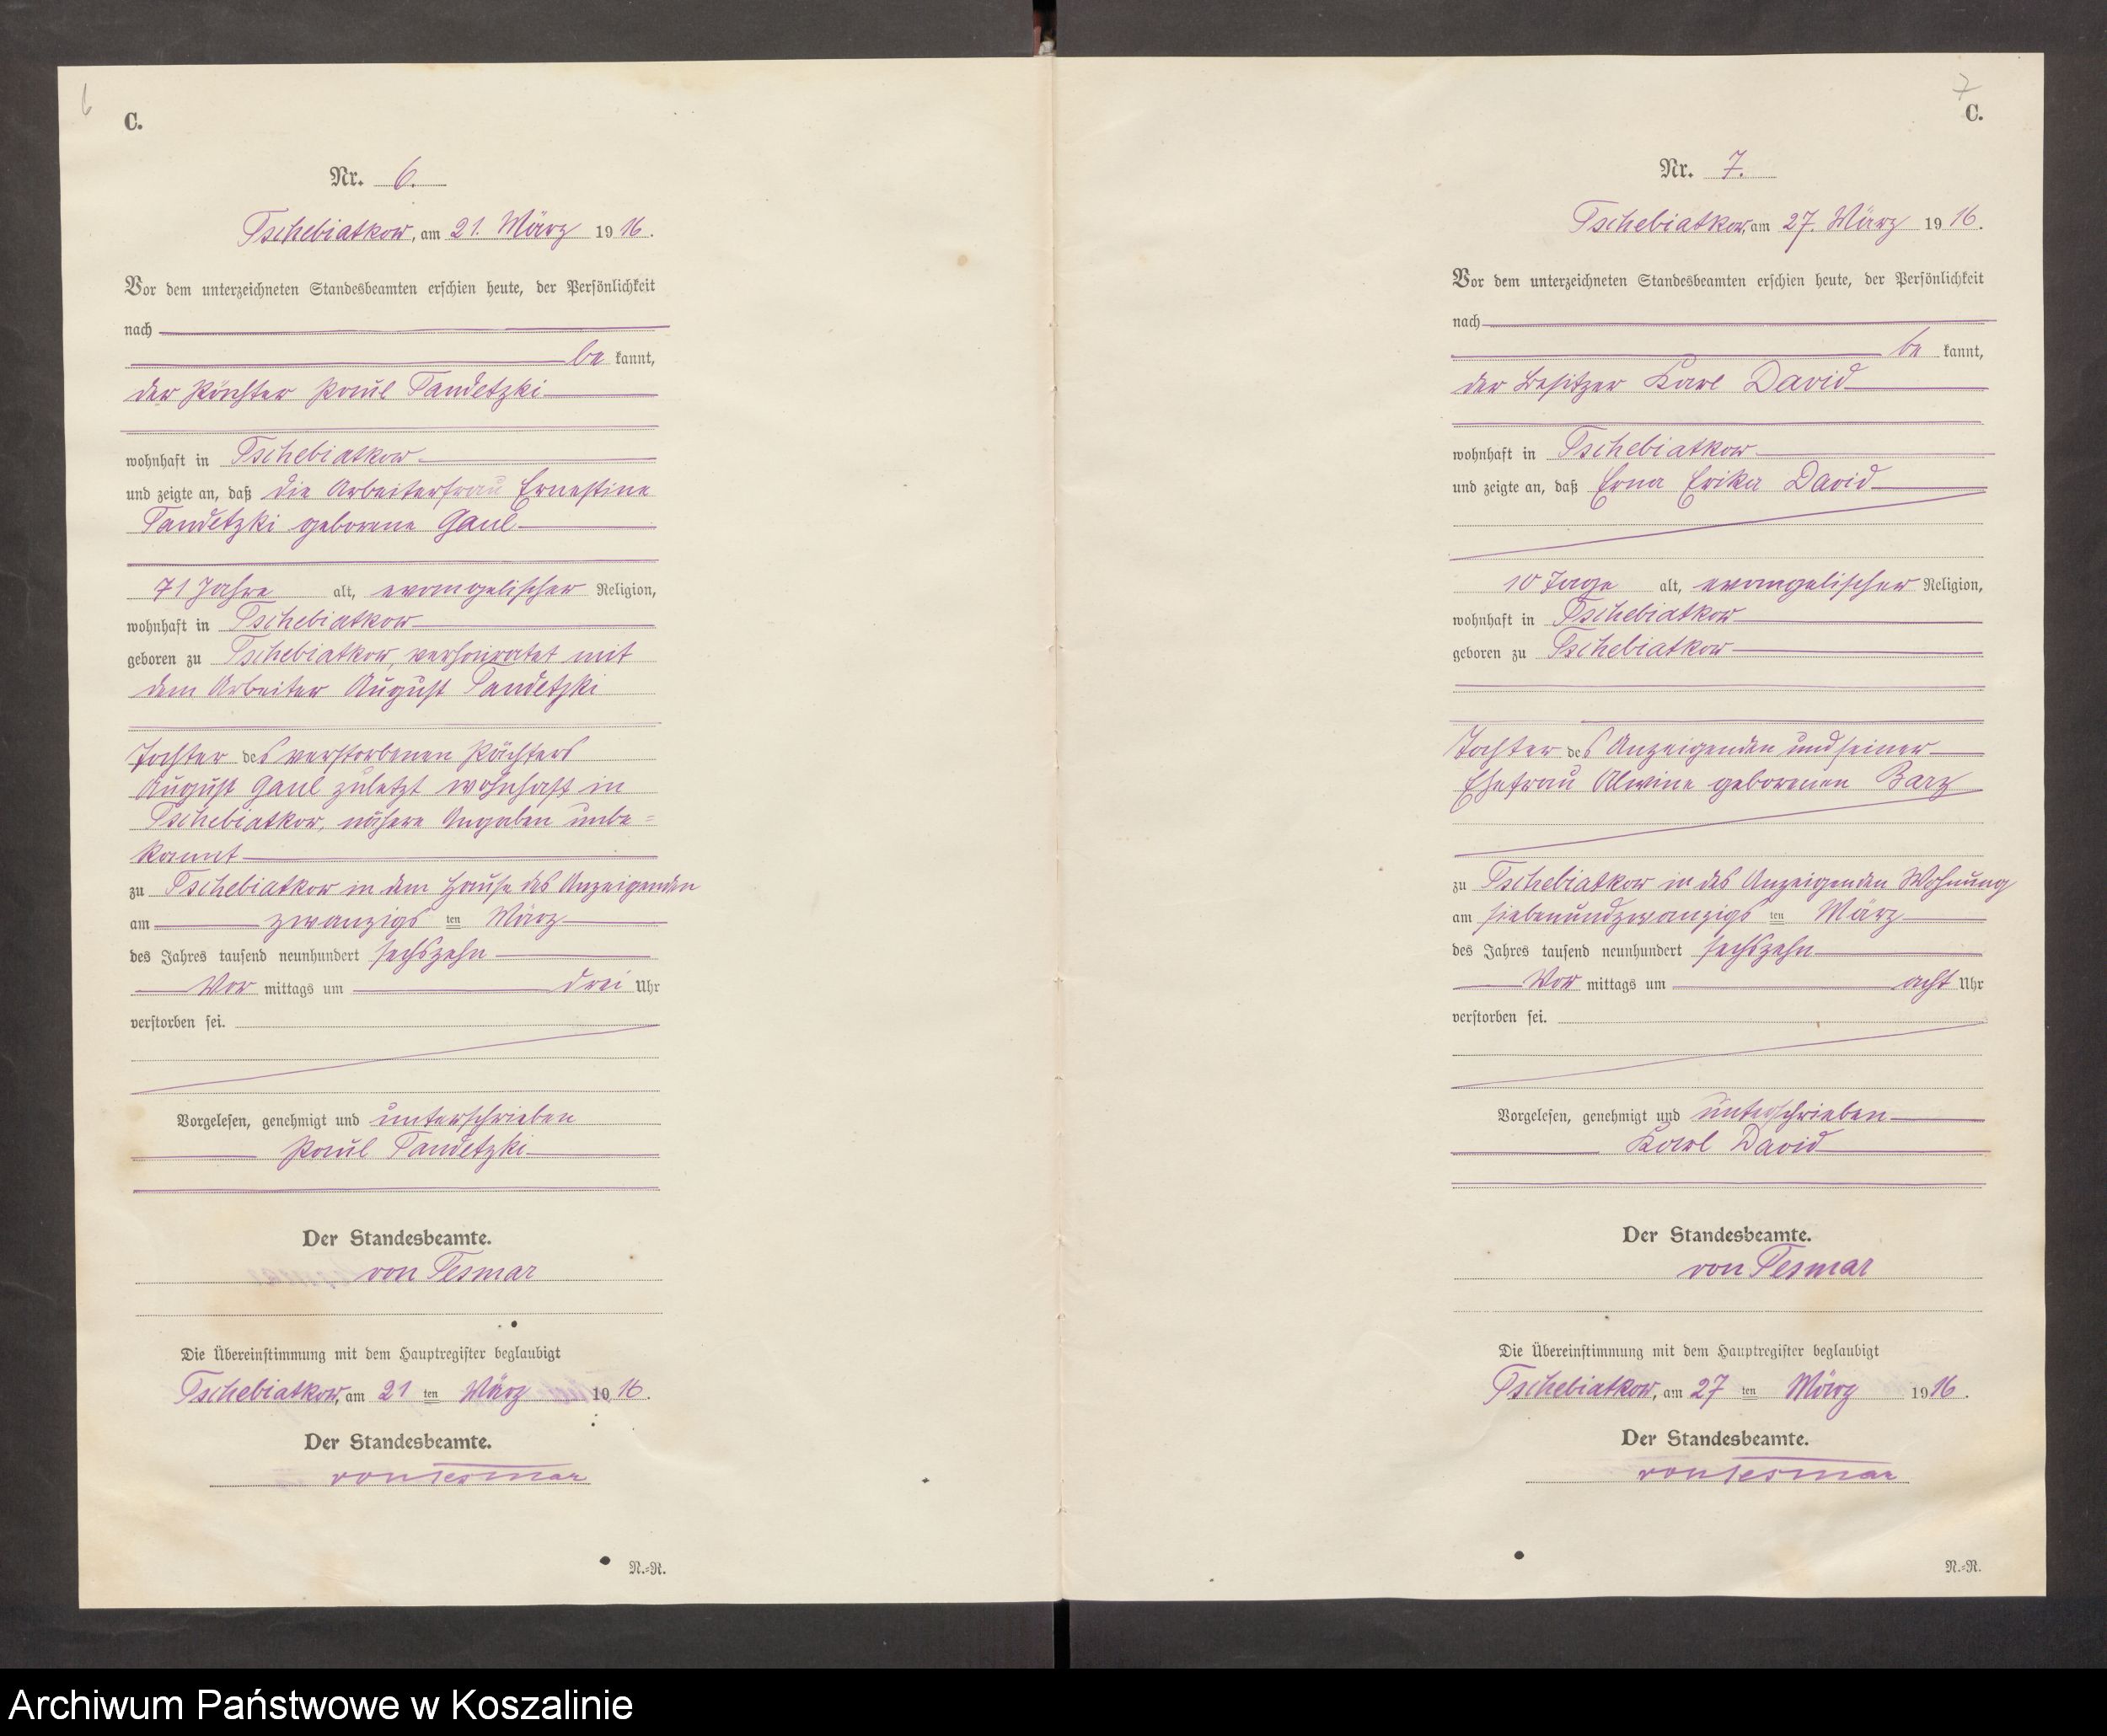 6
C.
Nr. 6.
Tschebiatkow, am 21. März 1916.
Vor dem unterzeichneten Standesbeamten erschien heute, der Persönlichkeit
nach
be kannt,
der Pächter Paul Tandetzki
wohnhaft in Tschebiatkow
und zeigte an, daß die Arbeiterfrau Ernestine
Tandetzki geborene Gaul
71 Jahre alt, evangelischer Religion,
wohnhaft in Tschebiatkow
geboren zu Tschebiatkow, verheiratet mit
dem Arbeiter August Tandetzki
Tochter des verstorbenen Pächters
August Gaul zuletzt wohnhaft in
Tschebiatkow, nähere Angaben unbe=
kannt
zu Tschebiatkow in dem Hause des Anzeigenden
am zwanzigs ten März
des Jahres tausend neunhundert sechszehn
Vor mittags um drei Uhr
verstorben sei.
Vorgelesen, genehmigt und unterschrieben
Paul Tandetzki
Der Standesbeamte.
von Tesmar
Die Übereinstimmung mit dem Hauptregister beglaubigt
Tschebiatkow, am 21 ten März 1916.
Der Standesbeamte.
von Tesmar
N.=R.
7
C.
Nr. 7.
Tschebiatkow, am 27. März 1916.
Vor dem unterzeichneten Standesbeamten erschien heute, der Persönlichkeit
nach
be kannt,
der Besitzer Karl David
wohnhaft in Tschebiatkow
und zeigte an, daß Erna Erika David
10 Tage alt, evangelischer Religion,
wohnhaft in Tschebiatkow
geboren zu Tschebiatkow
Tochter des Anzeigenden und seiner
Ehefrau Alwine geborenen Barz
zu Tschebiatkow in des Anzeigenden Wohnung
am siebenundzwanzigs ten März
des Jahres tausend neunhundert sechszehn
Vor mittags um acht Uhr
verstorben sei.
Vorgelesen, genehmigt und unterschrieben
Karl David
Der Standesbeamte.
von Tesmar
Die Übereinstimmung mit dem Hauptregister beglaubigt
Tschebiatkow, am 27 ten März 1916.
Der Standesbeamte.
von Tesmar
N.=R.
Archiwum Państwowe w Koszalinie